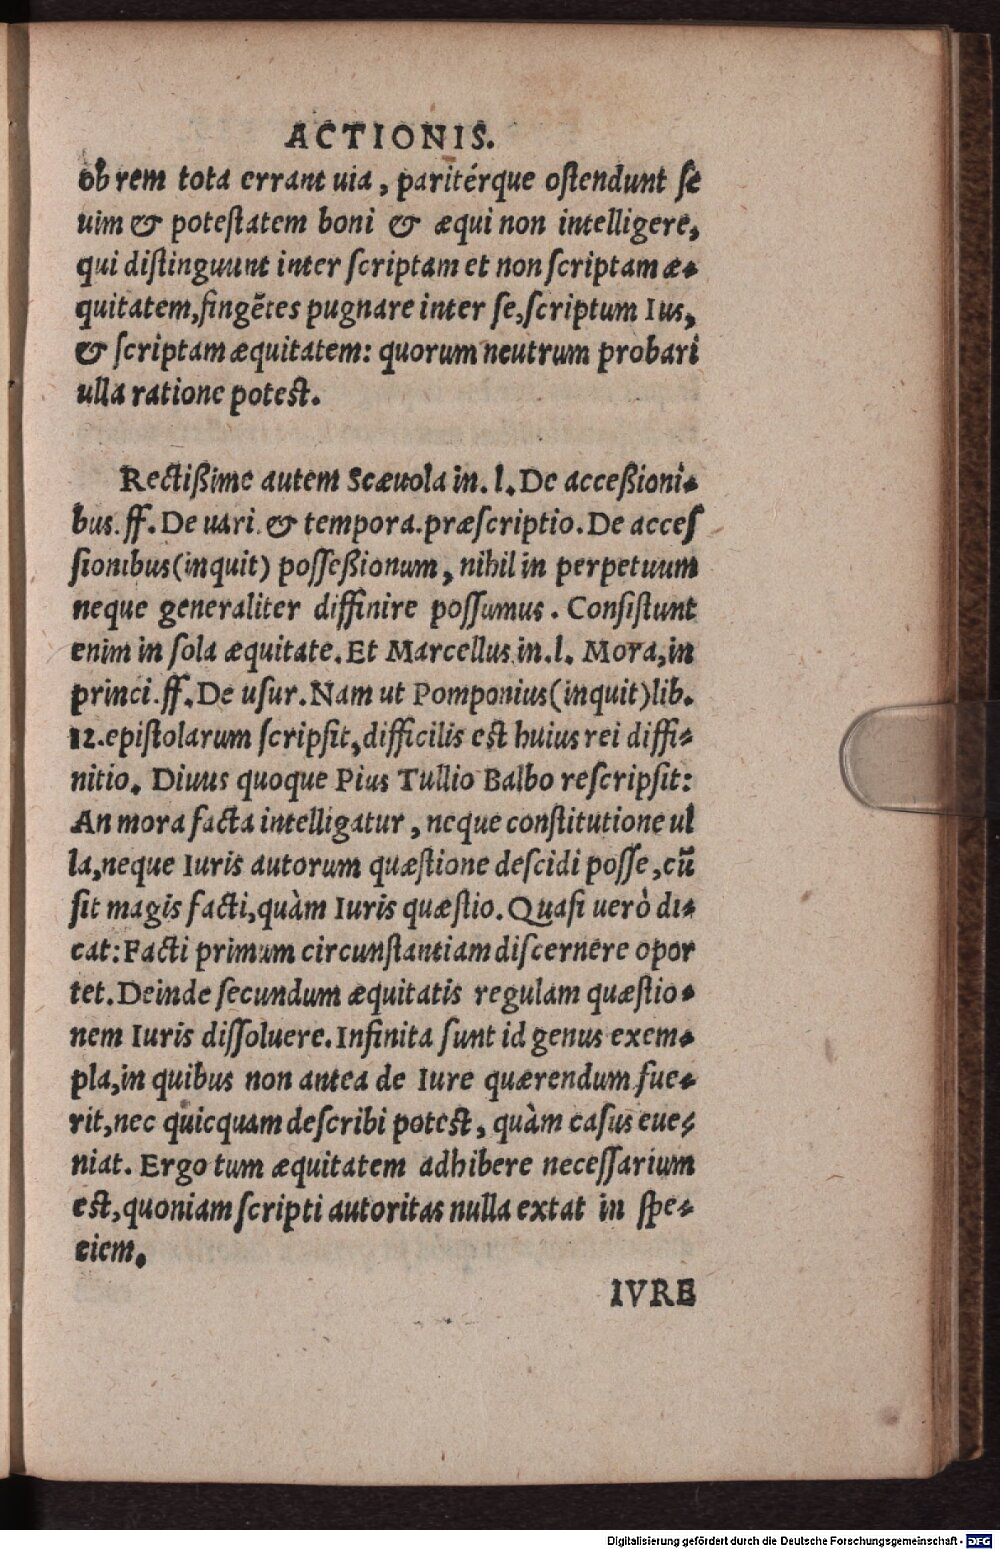 ACTIONIS.
ob rem tota errant uia, paritérque ostendunt se
uim & potestatem boni & æqui non intelligere,
qui distinguunt inter scriptam et non scriptam æ-
quitatem, fingẽtes pugnare inter se, scriptum Ius,
& scriptam æquitatem: quorum neutrum probari
ulla ratione potest.
Rectißime autem Scæuola in. l. De acceßioni-
bus. ff. De uari. & tempora. præscriptio. De acces
sionibus (inquit) posseßionum, nihil in perpetuum
neque generaliter diffinire possumus. Consistunt
enim in sola æquitate. Et Marcellus in. l. Mora, in
princi. ff. De usur. Nam ut Pomponius (inquit) lib.
12. epistolarum scripsit, difficilis est huius rei diffi-
nitio. Diuus quoque Pius Tullio Balbo rescripsit:
An mora facta intelligatur, neque constitutione ul
la, neque Iuris autorum quæstione descidi posse, cũ
sit magis facti, quàm Iuris quæstio. Quasi uerò di-
cat: Facti primum circunstantiam discernere opor
tet. Deinde secundum æquitatis regulam quæstio-
nem Iuris dissoluere. Infinita sunt id genus exem-
pla, in quibus non antea de Iure quærendum fue-
rit, nec quicquam describi potest, quàm casus eue-
niat. Ergo tum æquitatem adhibere necessarium
est, quoniam scripti autoritas nulla extat in spe-
ciem.
IVRE
Digitalisierung gefördert durch die Deutsche Forschungsgemeinschaft - DFG